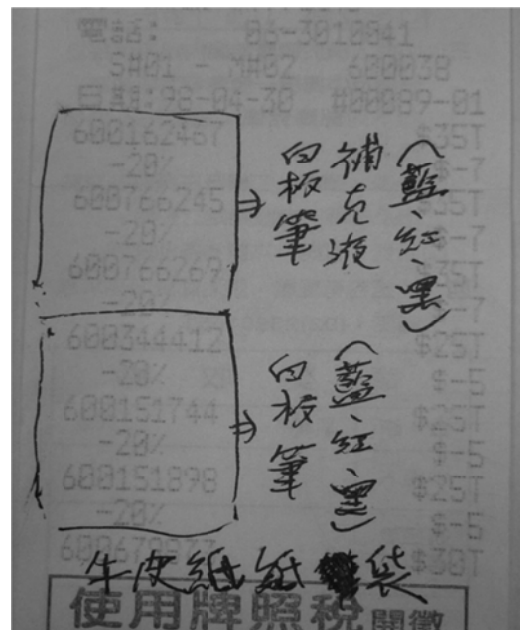 電話: 06-3010041
S#01 - M#02 600038
日期:98-04-30 #00089-01
600162467 $35T
-20% $-7
600766245 $35T
-20% $-7
600766269 $35T
-20% $-7
600344412 $25T
-20% $-5
600151744 $25T
-20% $-5
600151898 $25T
-20% $-5
$30T
⇒ 白板筆
補充液
(藍、紅、黑)
⇒ 白板筆
(藍、紅、黑)
牛皮紙紙袋
使用牌照稅開徵